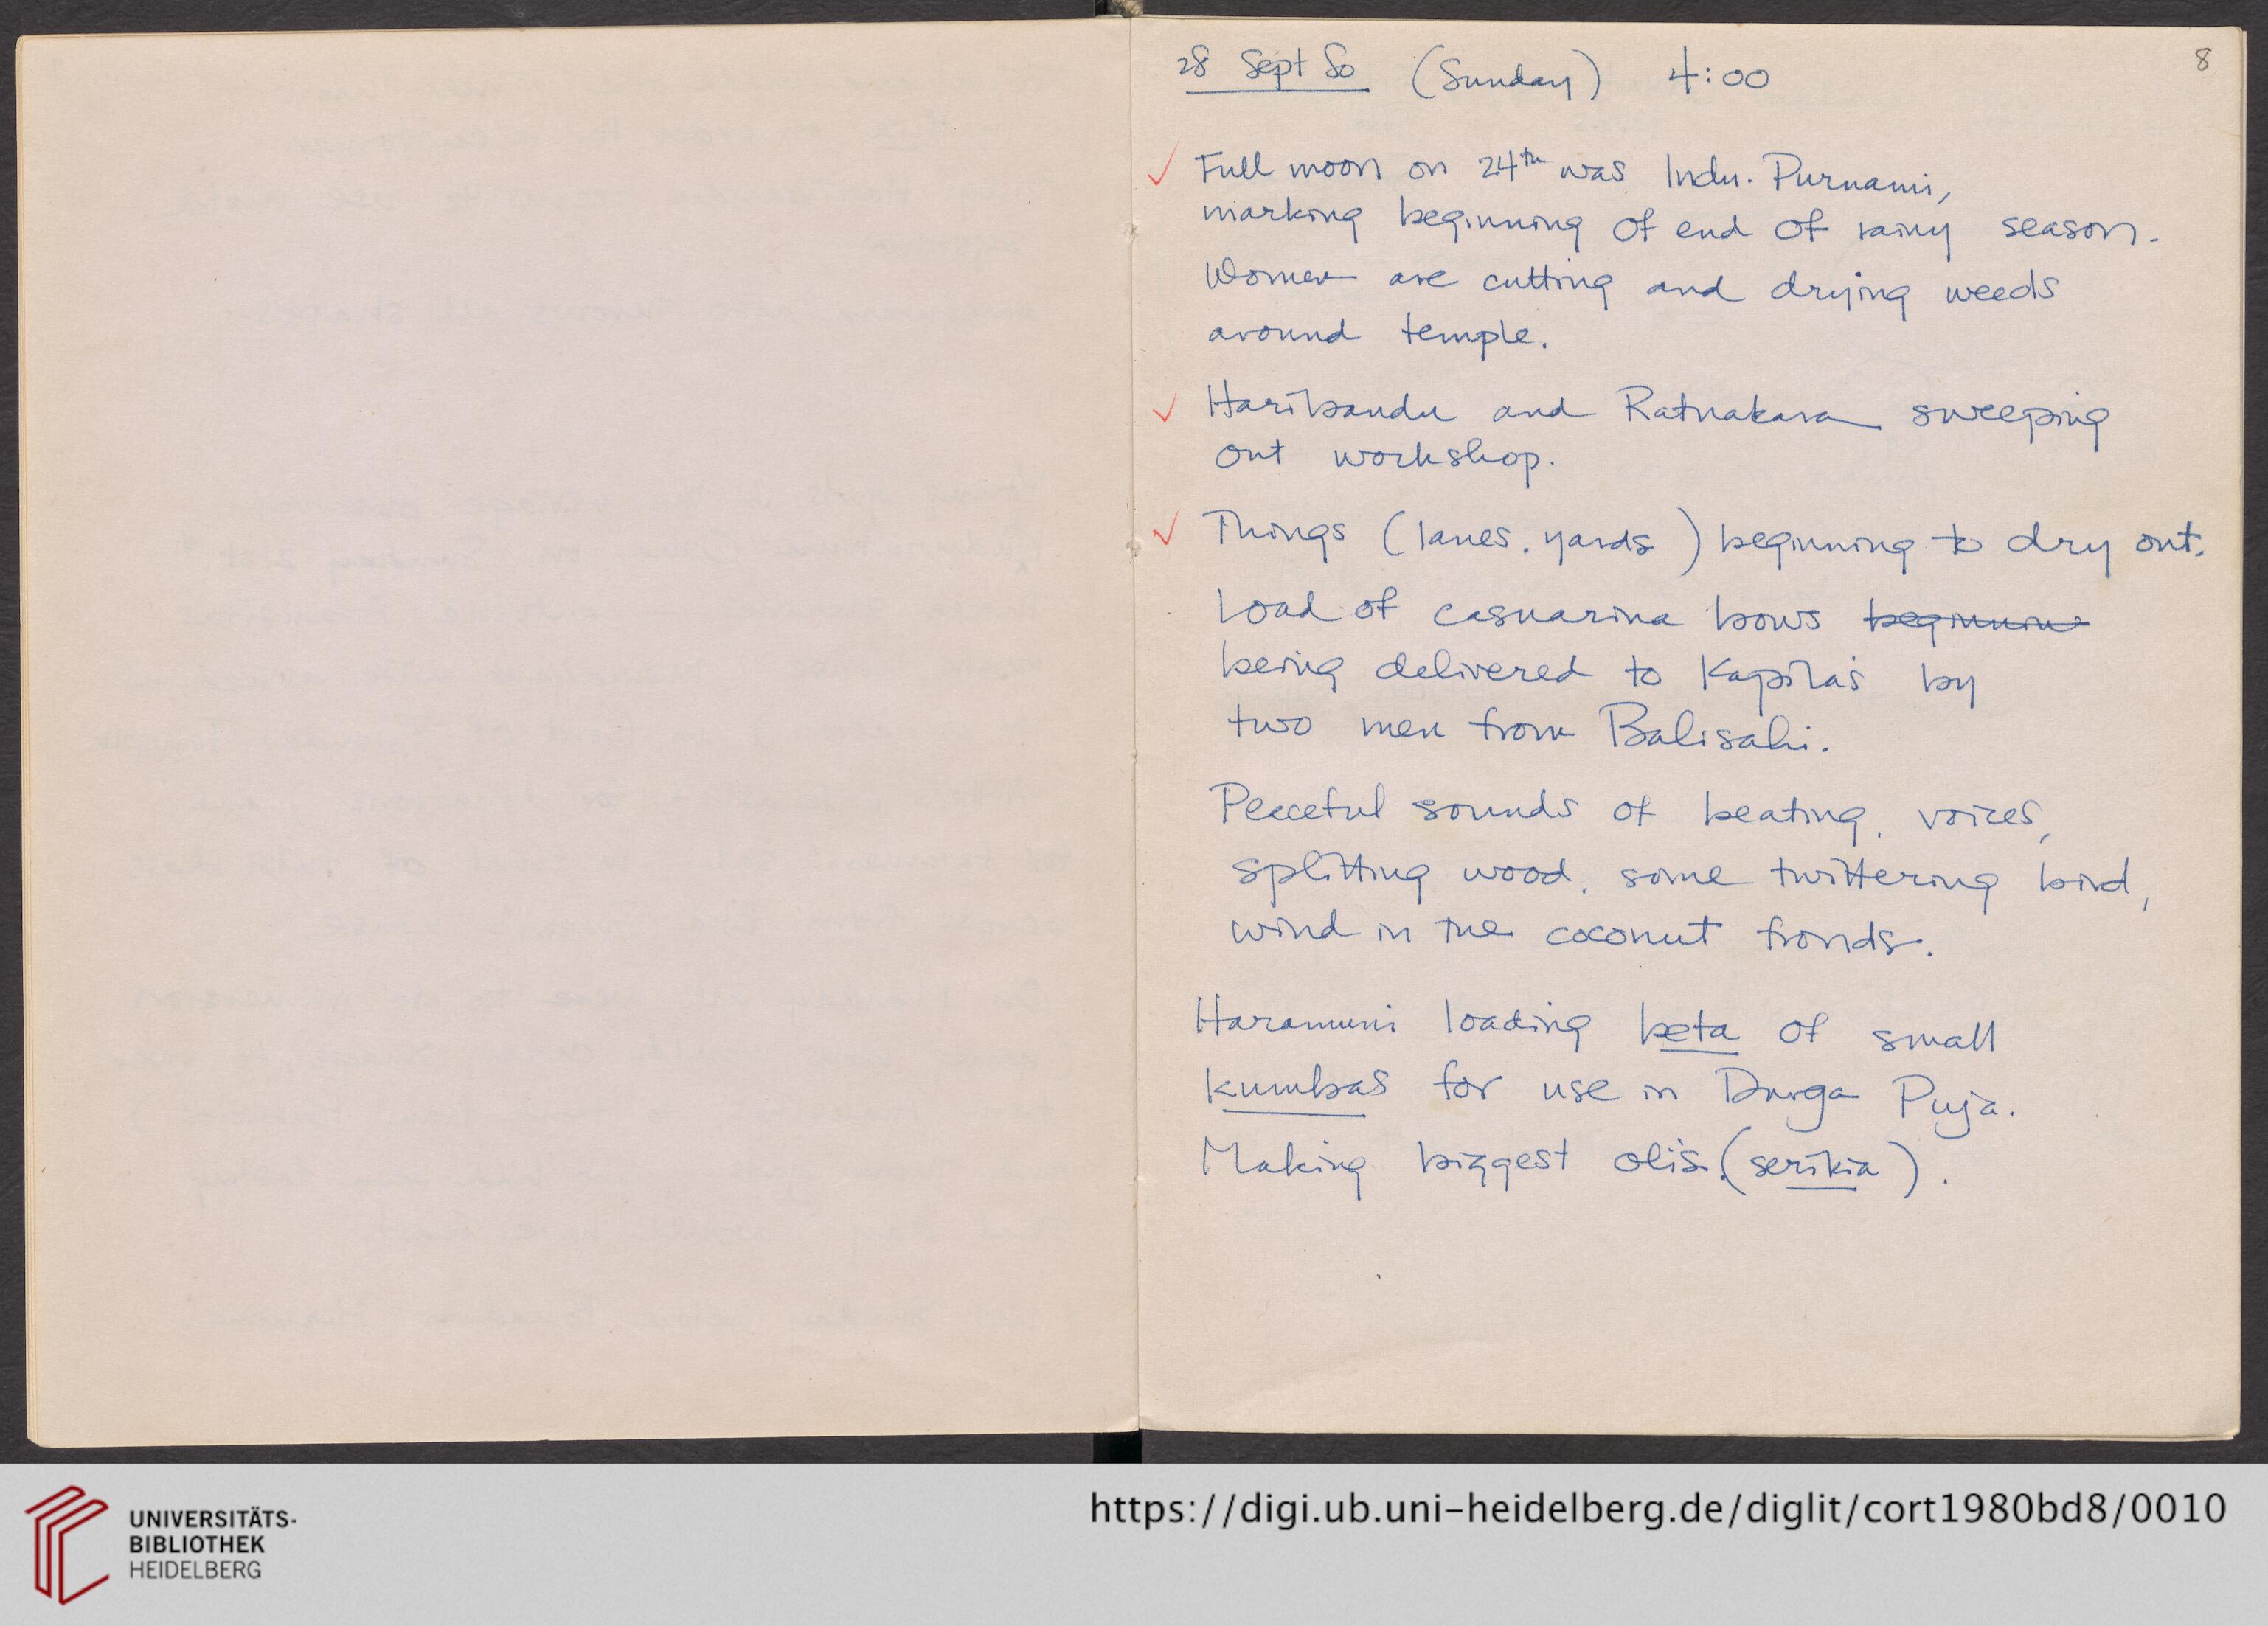 28 Sept 80 (Sunday) 4:00
8
✓ Full moon on 24th was Indu. Purnami,
marking beginning of end of rainy season.
Women are cutting and drying weeds
around temple.
✓ Haribandu and Ratnakara sweeping
out workshop.
✓ Things (lanes, yards) beginning to dry out.
Load of casuarina bows beginnin
being delivered to Kapila's by
two men from Balisahi.
Peaceful sounds of beating, voices,
splitting wood, some twittering bird,
wind in the coconut fronds.
Haramuni loading beta of small
kumbas for use in Durga Puja.
Making biggest olis. (serikia).
UNIVERSITÄTS-
BIBLIOTHEK
HEIDELBERG
https://digi.ub.uni-heidelberg.de/diglit/cort1980bd8/0010